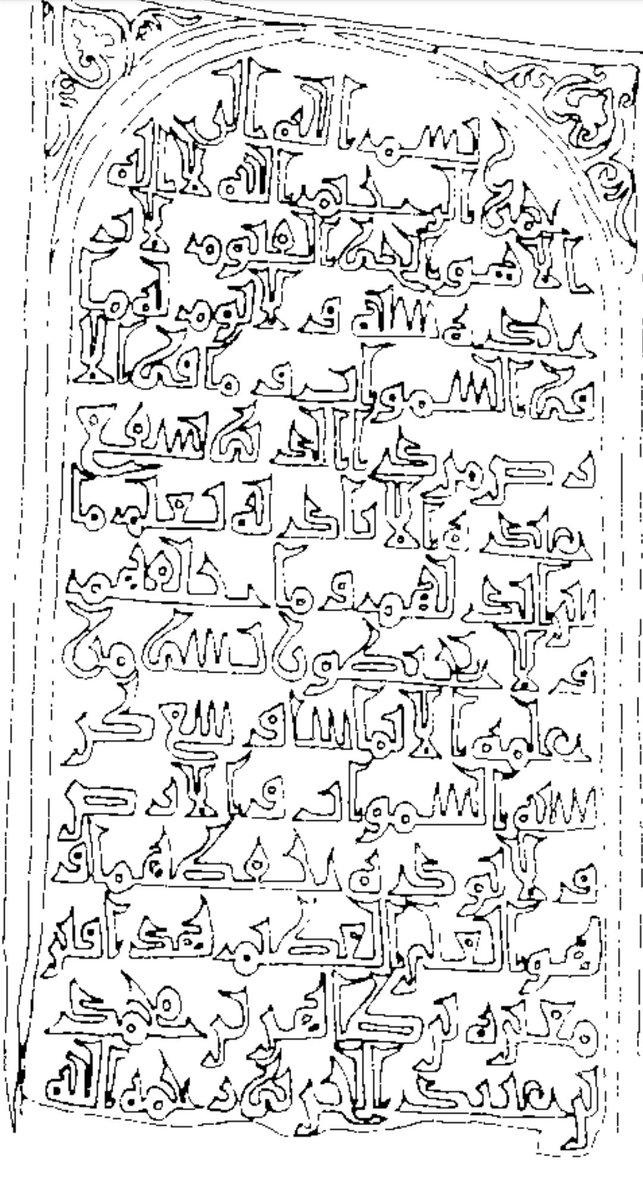 بسم الله الر
حمن الرحيم الله لا اله
الا هو الحي القيوم لا تا
خذه سنة ولا نوم له ما
في السموات وما في الا
رض من ذا الذي يشفع
عنده الا باذنه يعلم ما
بين ايديهم وما خلفهم
ولا يحيطون بشي من
علمه الا بما شا وسع كر
سيه السموات والارض
ولا يوده حفظهما و
هو العلي العظيم هذا قبر
رحمه الله